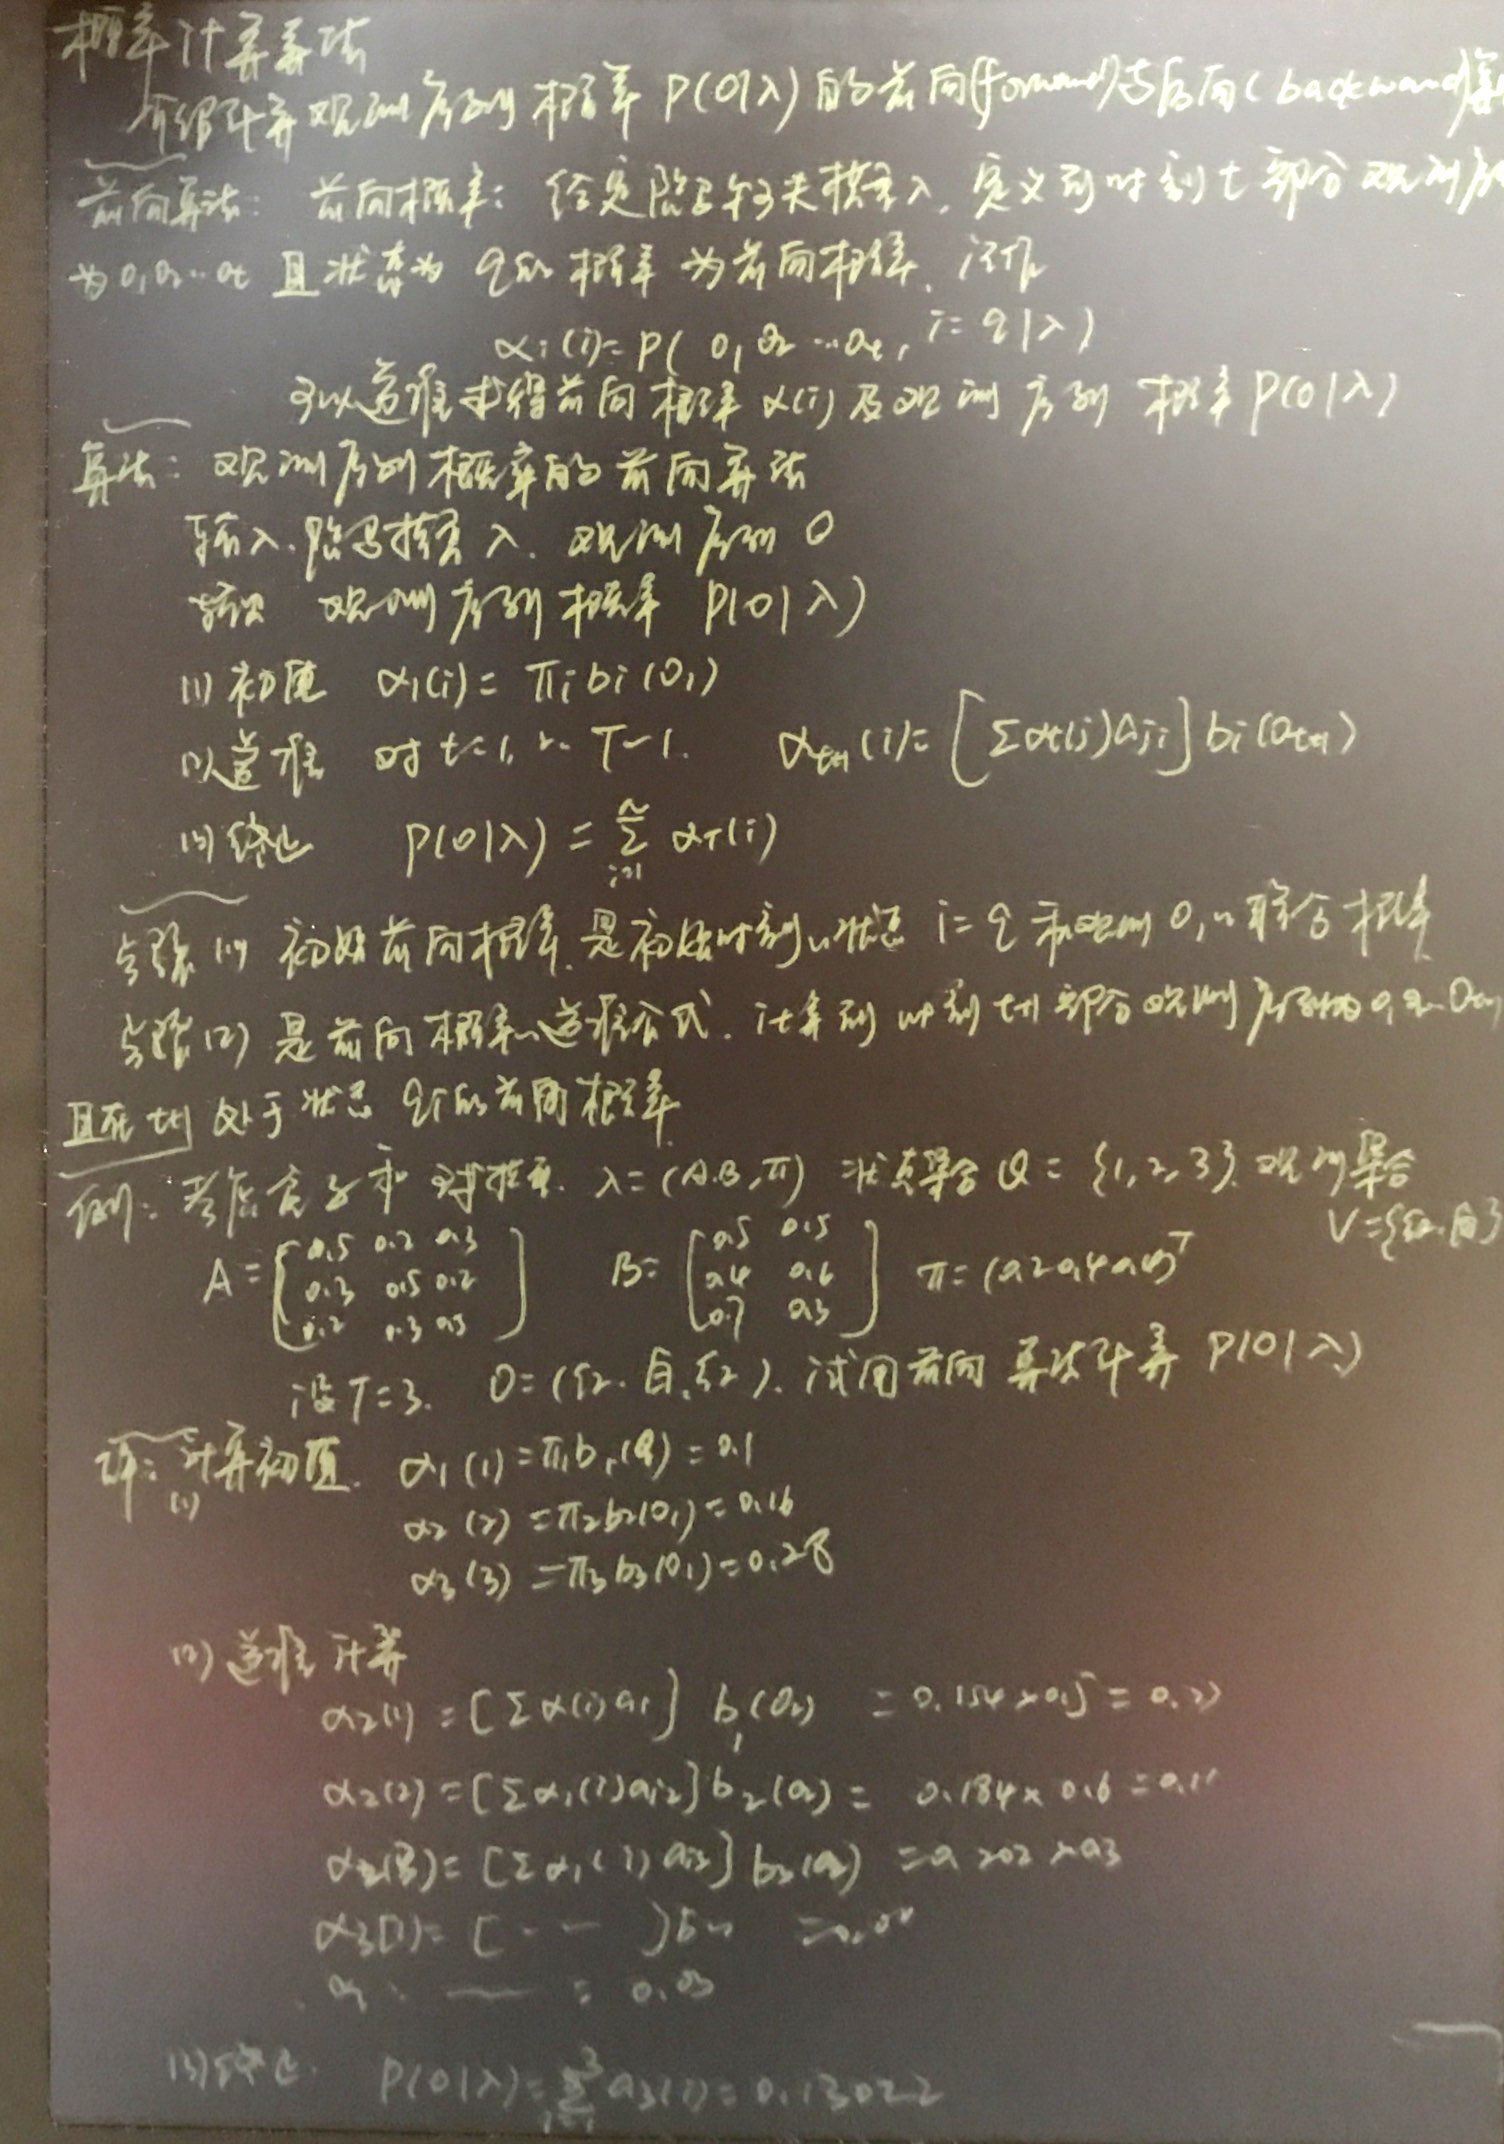 概率计算算法
介绍计算观测序列概率 P(O|λ) 的前向(forward)与后向(backward)算
前向算法: 前向概率: 给定隐马尔可夫模型λ, 定义到时刻t部分观测序
为 o₁o₂…ot 且状态为 q的概率 为前向概率, 记作
α₁(i)=P( o₁ o₂ …ot, i=q|λ)
可以递推求得前向概率 α(i) 及观测序列 概率 P(O|λ)
算法: 观测序列概率的前向算法
输入. 隐马模型 λ. 观测序列 O
输出 观测序列概率 P(O|λ)
(1) 初值 α₁(i)= πibi(O₁)
(2) 递推 对 t=1, 2… T-1. αt+1(i)= [Σαt(j)aji] bi(Ot+1)
(3) 终止 P(O|λ) = Σ αT(i)
步骤(1) 初始前向概率, 是初始时刻的状态 i=q 和观测 O₁的联合概率
步骤(2) 是前向概率的递推公式. 计算到时刻 t+1 部分观测序列为 o₁o₂…ot+1
且在 t+1 处于状态 qi的前向概率
例: 考虑盒子和球模型. λ=(A.B,π) 状态集合 Q={1,2,3}. 观测集合
V={红.白}
A= [0.5 0.2 0.3 B= [0.5 0.5
0.3 0.5 0.2 0.4 0.6 π=(0.2 0.4 0.4)ᵀ
0.2 0.3 0.5] 0.7 0.3]
设T=3. O=(红. 白.红). 试用前向算法计算 P(O|λ)
解: 计算初值. α₁(1)=π₁b₁(O₁)=0.1
(1)
α₂(2)=π₂b₂(O₁)=0.16
α₃(3)=π₃b₃(O₁)=0.28
(2) 递推计算
α₂(1)=[Σα(i)ai] b₁(O₂) =0.154×0.5=0.77
α₂(2)=[Σα₁(i)ai2]b₂(O₂)= 0.184×0.6=0.11
α₂(3)=[Σα₁(i)ai3]b₃(O₂) =0.202×0.3
α₃(1)=[ – – ]b =0.04
= 0.03
(3) 终止. P(O|λ)=Σα₃(i)=0.13022